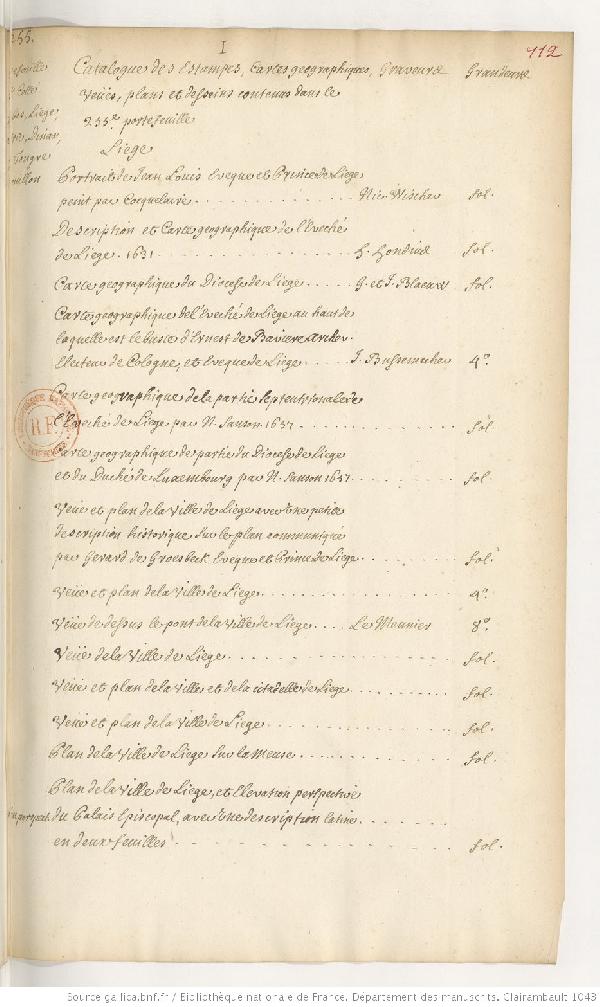 255.
I
112
Catalogue des Estampes, Cartes geographiques, Graveurs Grandeurs
Veües, plans et desseins contenus dans le
255.e portefeuille
Liege
Liege,
Dinan,
Portrait de Jean Louis Eveque et Prince de Liege
peint par Cocquelaire Nic. Wischer fol.
Description et Carte geographique de l'Eveché
de Liege. 1631 H. Hondius fol.
Carte geographique du Diocese de Liege G. et J. Blaeuws fol.
Carte geographique de l'Eveché de Liege au haut de
laquelle est le buste d'Ernest de Baviere archev.
Electeur de Cologne, et Eveque de Liege J. Bussemacher 4.o
Carte geographique de la partie septentrionale de
l'Eveché de Liege par N. Sanson 1657 fol.
Carte geographique de partie du Diocese de Liege
et du Duché de Luxembourg par N. Sanson 1657 fol.
Veüe et plan de la Ville de Liege avec une petite
description historique sur le plan communiqué
par Gerard de Groesbeck Eveque et Prince de Liege fol.
Veüe et plan de la Ville de Liege 4.o
Veüe de dessus le pont de la Ville de Liege Le Meunier 8.o
Veüe de la Ville de Liege fol.
Veüe et plan de la Ville et de la citadelle de Liege fol.
Veüe et plan de la Ville de Liege fol.
Plan de la Ville de Liege sur la Meuse fol.
Plan de la Ville de Liege, et Elevation perspective
du Palais Episcopal, avec une description latine
en deux feuilles fol.
Source gallica.bnf.fr / Bibliothèque nationale de France. Département des manuscrits. Clairambault 1043